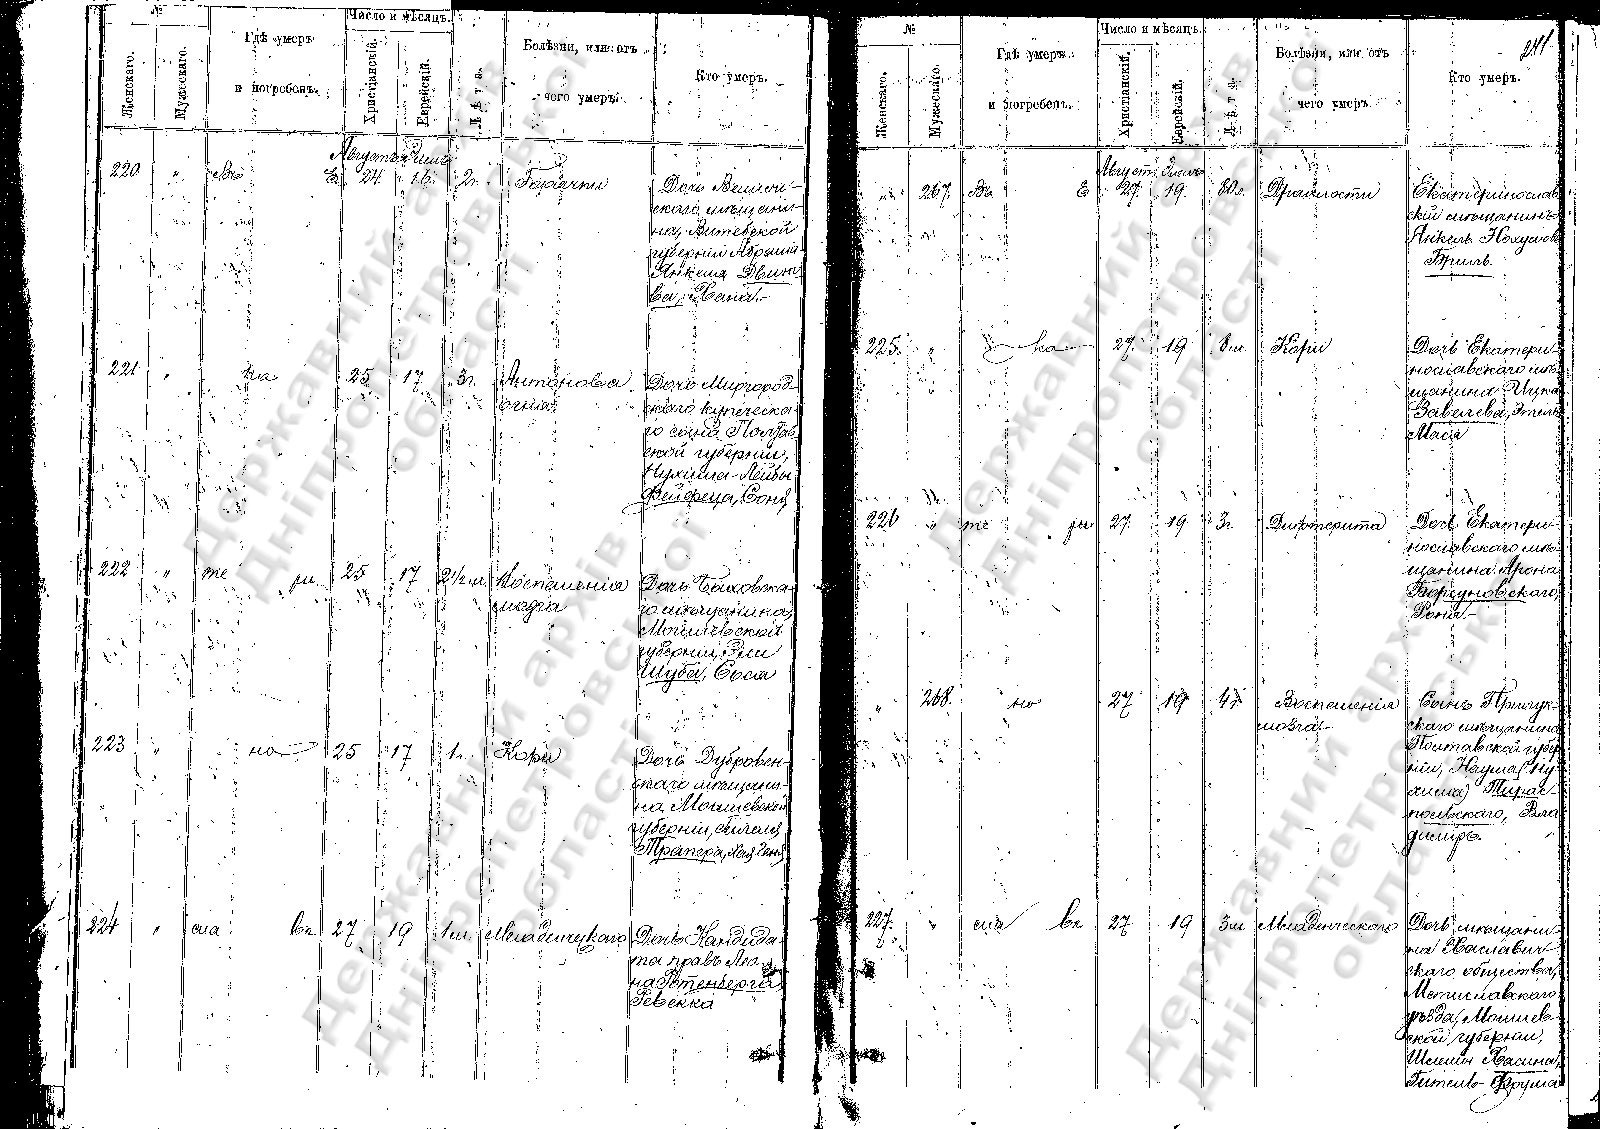 №
Число и мѣсяцъ.
Женскаго.
Мужескаго.
Гдѣ умеръ
и погребенъ.
Христіанскій.
Еврейскій.
Лѣта.
Болѣзни, или отъ
чего умеръ.
Кто умеръ.
Августъ
220 " Въ Е 24 16 2г. Горячки
Дочь
скаго мѣщани-
на, Витебской
губерніи Абрама
Янкеля Двин-
ва, Хана.-
221 " ка 25 17 3г. Антонова
огня.
Дочь Миргород-
скаго купческа-
го сына Полтав
ской губерніи,
Нухима-Лейбы
Фейфеца, Соня
222 " те ри 25 17 2½ м. Воспаленія
Дочь Быховска-
го мѣщанина,
Могилевской
губерніи, Эли
Шуба, Сося
223 " но 25 17 1г. Кори
Дочь Дубровен-
скаго мѣщани-
на Могилевской
губерніи,
Трапера, Хая
224 " сла вѣ 27 19 1м. Младенческаго
Дочь Кандида-
та правъ
на Ротенберга
Ревекка
241
№
Число и мѣсяцъ.
Женскаго.
Мужескаго.
Гдѣ умеръ
и погребенъ.
Христіанскій.
Еврейскій.
Лѣта.
Болѣзни, или отъ
чего умеръ.
Кто умеръ.
Август.
" 267. Въ Е 27. 19. Дряхлости
Екатеринослав
скій мѣщанинъ
Янкель Нохумов
Бриль.
225. " ка 27. 19 8м. Кори
Дочь Екатери-
нославскаго мѣ-
щанина Ицка
Завелева, Этель
Мася
226 " те ри 27. 19 3г. Дифтерита
Дочь Екатери-
нославскаго мѣ-
щанина Арона
Борсуновскаго,
Роня.-
" 268. но 27 19 4г. Воспаленія
мозга.-
Сынъ Прилук-
скаго мѣщанина
Полтавской губер
ніи, Наума (Ну-
хима) Тирас-
польскаго, Вла
диміръ.
227. " сла вѣ 27 19 3м Младенческаго
Дочь мѣщани-
на Хаславич
скаго общества,
Мстиславскаго
уѣзда, Могилев-
ской губерніи,
Шлемы Хасина,
Гитель-Фрума
Державний архів
Дніпропетровської
області